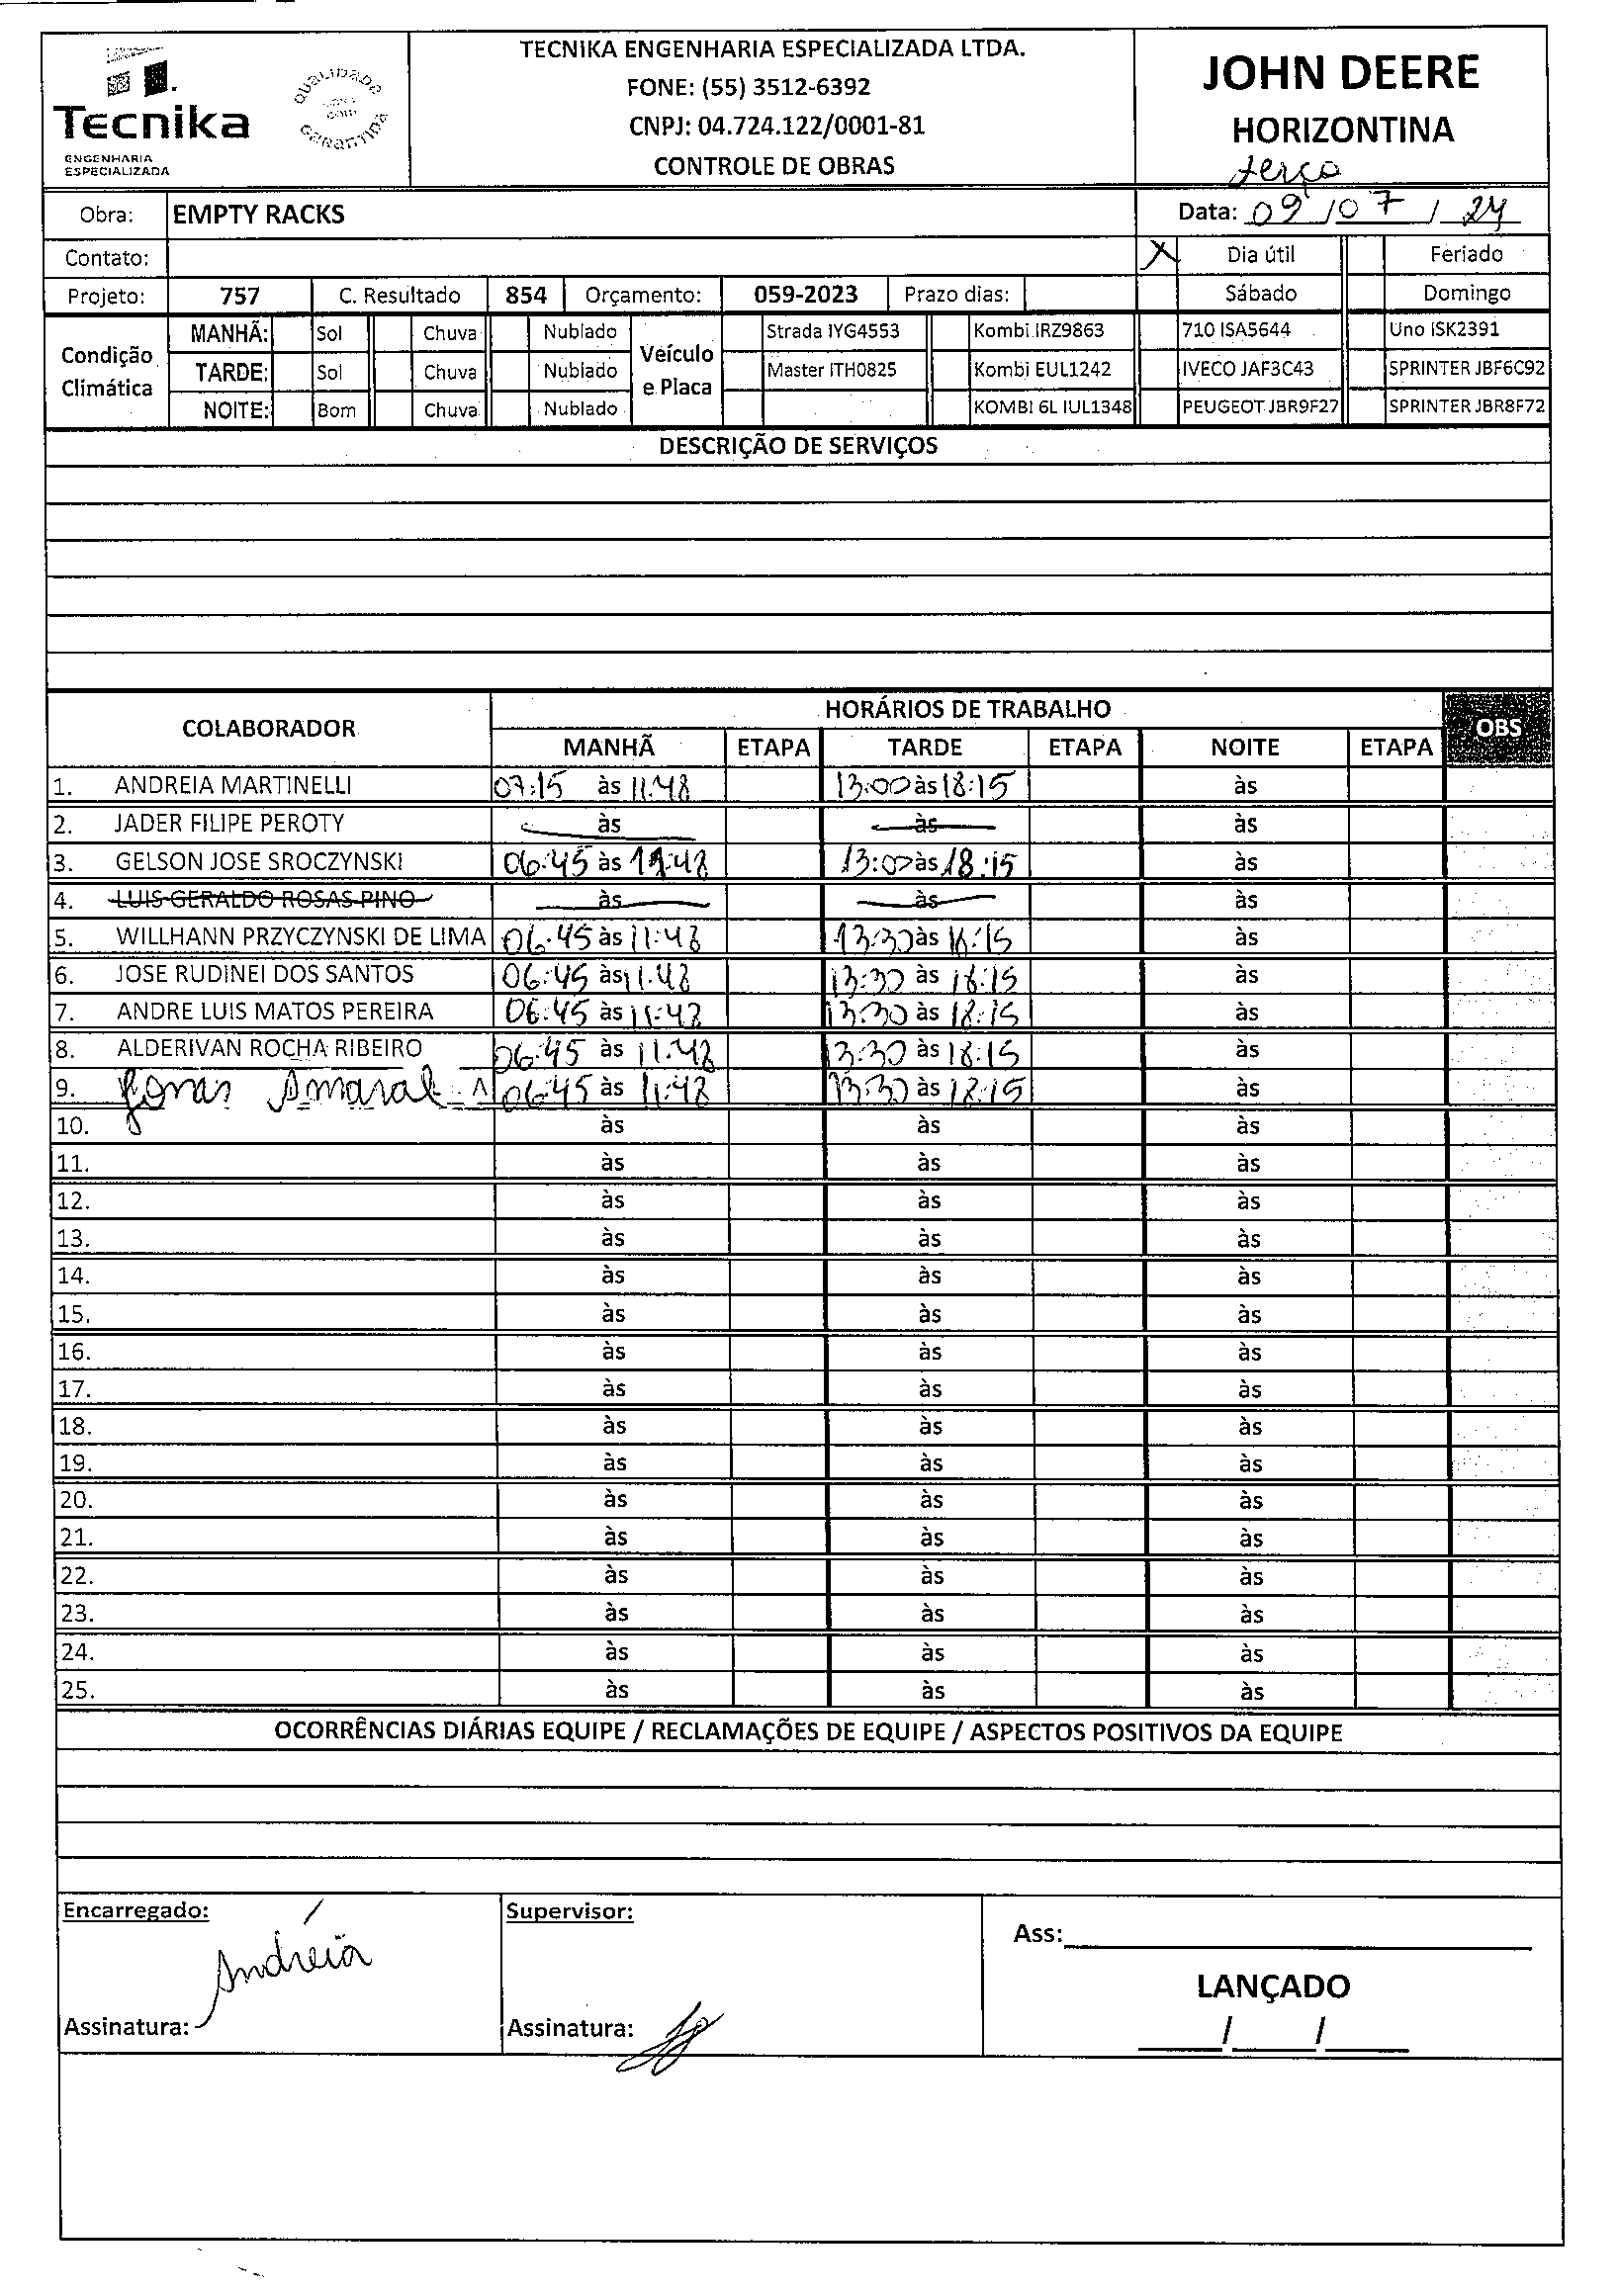 Tecnika
ENGENHARIA
ESPECIALIZADA
QUALIDADE COM GARANTIDA
TECNIKA ENGENHARIA ESPECIALIZADA LTDA.
FONE: (55) 3512-6392
CNPJ: 04.724.122/0001-81
CONTROLE DE OBRAS
JOHN DEERE
HORIZONTINA
terça
Obra: EMPTY RACKS Data: 09/07/24
Contato: X Dia útil Feriado
Projeto: 757 C. Resultado 854 Orçamento: 059-2023 Prazo dias: Sábado Domingo
Condição Climática Veículo e Placa
MANHÃ: Sol Chuva Nublado Strada IYG4553 Kombi IRZ9863 710 ISA5644 Uno ISK2391
TARDE: Sol Chuva Nublado Master ITH0825 Kombi EUL1242 IVECO JAF3C43 SPRINTER JBF6C92
NOITE: Bom Chuva Nublado KOMBI 6L IUL1348 PEUGEOT JBR9F27 SPRINTER JBR8F72
DESCRIÇÃO DE SERVIÇOS
COLABORADOR HORÁRIOS DE TRABALHO OBS
MANHÃ ETAPA TARDE ETAPA NOITE ETAPA
1. ANDREIA MARTINELLI 07:15 às 11:48 13:00 às 18:15 às
2. JADER FILIPE PEROTY às às às
3. GELSON JOSE SROCZYNSKI 06:45 às 11:48 13:00 às 18:15 às
4. LUIS GERALDO ROSAS PINO às às às
5. WILLHANN PRZYCZYNSKI DE LIMA 06:45 às 11:48 13:30 às 18:15 às
6. JOSE RUDINEI DOS SANTOS 06:45 às 11:48 13:30 às 18:15 às
7. ANDRE LUIS MATOS PEREIRA 06:45 às 11:48 13:30 às 18:15 às
8. ALDERIVAN ROCHA RIBEIRO 06:45 às 11:48 13:30 às 18:15 às
9. Jonas Amaral 06:45 às 11:48 13:30 às 18:15 às
10. às às às
11. às às às
12. às às às
13. às às às
14. às às às
15. às às às
16. às às às
17. às às às
18. às às às
19. às às às
20. às às às
21. às às às
22. às às às
23. às às às
24. às às às
25. às às às
OCORRÊNCIAS DIÁRIAS EQUIPE / RECLAMAÇÕES DE EQUIPE / ASPECTOS POSITIVOS DA EQUIPE
Encarregado: Supervisor: Ass:
Andréia
LANÇADO
Assinatura: Assinatura: / /